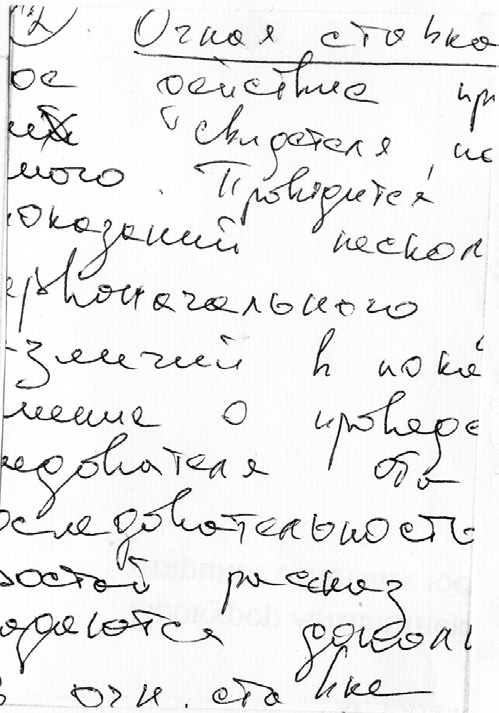 2. Очная ставка
ое действие пр
их свидетеля, по
мого. Проводится
оказаний нескол
ервоначального
зличий в пока
шение о проведе
едователя ота
оследовательность
ростой рассказ
адаются дополн
в очн. ставке